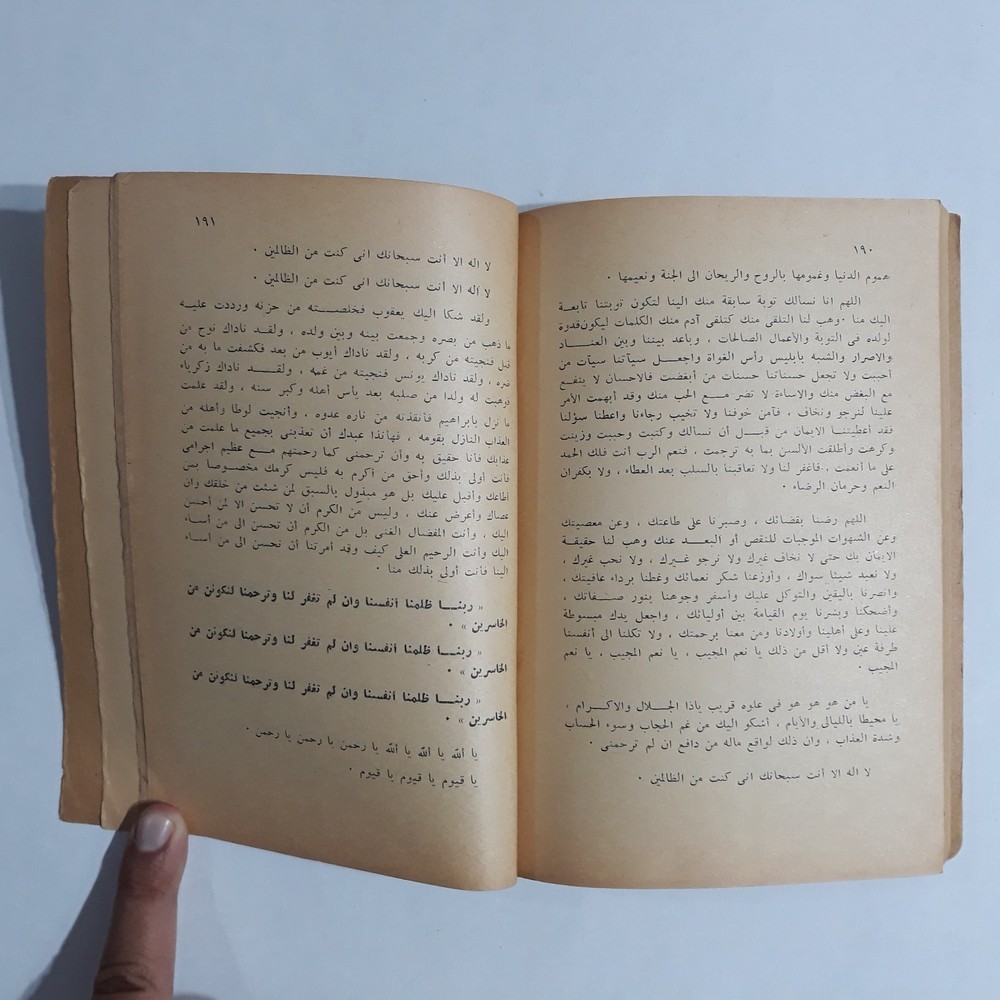 ١٩٠
هموم الدنيا وغمومها بالروح والريحان الى الجنة ونعيمها .
اللهم انا نسألك توبة سابقة منك الينا لتكون توبتنا تابعة
اليك منا . وهب لنا التلقى منك كتلقى آدم منك الكلمات ليكون قدوة
لولده فى التوبة والأعمال الصالحات ، وباعد بيننا وبين العنـــاد
والاصرار والشبه بابليس رأس الغواة واجعـــل سيآتنا سيآت من
أحببت ولا تجعل حسناتنا حسنات من أبغضت فالاحسان لا ينفـع
مع البغض منك والاساءة لا تضر مــع الحب منك وقد أبهمت الأمر
علينا لنرجو ونخاف ، فآمن خوفنا ولا تخيب رجاءنا واعطنا سؤلنا
فقد أعطيتنـــا الايمان من قبـــل أن نسألك وكتبت وحببت وزينت
وكرهت وأطلقت الألسن بما به ترجمت ، فنعم الرب أنت فلك الحمد
على ما أنعمت ، فاغفر لنا ولا تعاقبنا بالسلب بعد العطاء ، ولا بكفران
النعم وحرمان الرضاء .
اللهم رضنا بقضائك ، وصبرنا على طاعتك ، وعن معصيتك
وعن الشهوات الموجبات للنقص أو البعـــد عنك وهب لنا حقيقـة
الايمان بك حتى لا نخاف غيرك ولا نرجو غــيرك ، ولا نحب غيرك ،
ولا نعبد شيئا سواك ، وأوزعنا شكر نعمائك وغطنا برداء عافيتك ،
وانصرنا باليقين والتوكل عليك وأسفر وجوهنا بنور صـــفاتك ،
وأضحكنا وبشرنا يوم القيامة بين أوليائك ، واجعل يدك مبسوطة
علينا وعلى أهلينا وأولادنا ومن معنا برحمتك ، ولا تكلنا الى أنفسنا
طرفة عين ولا أقل من ذلك يا نعم المجيب ، يا نعم المجيب ، يا نعم
المجيب .
يا من هو هو هو فى علوه قريب ياذا الجــلال والاكـــرام ،
يا محيطا بالليالى والأيام ، أشكو اليك من غم الحجاب وسوء الحساب
وشدة العذاب ، وان ذلك لواقع ماله من دافع ان لم ترحمنى .
لا اله الا أنت سبحانك انى كنت من الظالمين .
١٩١
لا اله الا أنت سبحانك انى كنت من الظالمين .
لا اله الا أنت سبحانك انى كنت من الظالمين .
ولقد شكا اليك يعقوب فخلصـــته من حزنه ورددت عليـه
ما ذهب من بصره وجمعت بينه وبين ولده ، ولقـد ناداك نوح من
قبل فنجيته من كربه ، ولقد ناداك أيوب من بعد فكشفت ما به من
ضره ، ولقد ناداك يونس فنجيته من غمه ، ولقـــد ناداك زكرياء
فوهبت له ولدا من صلبه بعد يأس أهله وكبر سنه ، ولقد علمت
ما نزل بابراهيم فأنقذته من ناره عدوه ، وأنجيت لوطا وأهله من
العذاب النازل بقومه ، فهأنذا عبدك أن تعذبنى بجميع ما علمت من
عذابك فأنا حقيق به وأن ترحمنى كما رحمتهم مــع عظيم اجرامى
فأنت أولى بذلك وأحق من أكرم به فليس كرمك مخصــوصا بمن
أطاعك وأقبل عليك بل هو مبذول بالسبق لمن شئت من خلقك وان
عصاك وأعرض عنك ، وليس من الكرم أن لا تحسن الا لمن أحسن
اليك ، وأنت المفضال الغنى بل من الكرم أن تحسن الى من أســاء
اليك وأنت الرحيم العلى كيف وقد أمرتنا أن نحسن الى من أســاء
الينا فأنت أولى بذلك منا .
« ربنـــا ظلمنا أنفسنا وان لم تغفر لنا وترحمنا لنكونن من
الخاسرين » .
« ربنـــا ظلمنا أنفسنا وان لم تغفر لنا وترحمنا لنكونن من
الخاسرين » .
« ربنـــا ظلمنا أنفسنا وان لم تغفر لنا وترحمنا لنكونن من
الخاسرين » .
يا ألله يا ألله يا ألله يا رحمن يا رحمن يا رحمن .
يا قيوم يا قيوم يا قيوم .